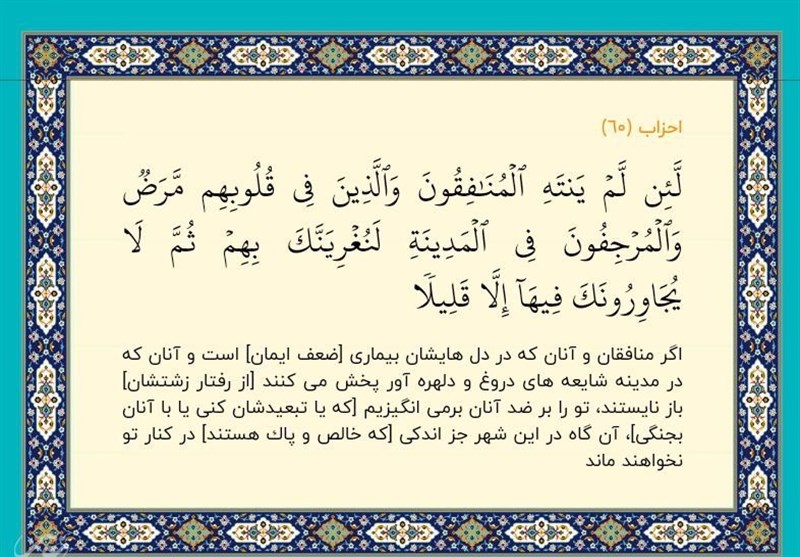 احزاب (٦٠)
لَّئِن لَّمْ يَنتَهِ ٱلْمُنَٰفِقُونَ وَٱلَّذِينَ فِى قُلُوبِهِم مَّرَضٌ
وَٱلْمُرْجِفُونَ فِى ٱلْمَدِينَةِ لَنُغْرِيَنَّكَ بِهِمْ ثُمَّ لَا
يُجَاوِرُونَكَ فِيهَآ إِلَّا قَلِيلًا
اگر منافقان و آنان که در دل هایشان بیماری [ضعف ایمان] است و آنان که
در مدینه شایعه های دروغ و دلهره آور پخش می کنند [از رفتار زشتشان]
باز نایستند، تو را بر ضد آنان برمی انگیزیم [که یا تبعیدشان کنی یا با آنان
بجنگی]، آن گاه در این شهر جز اندکی [که خالص و پاك هستند] در کنار تو
نخواهند ماند